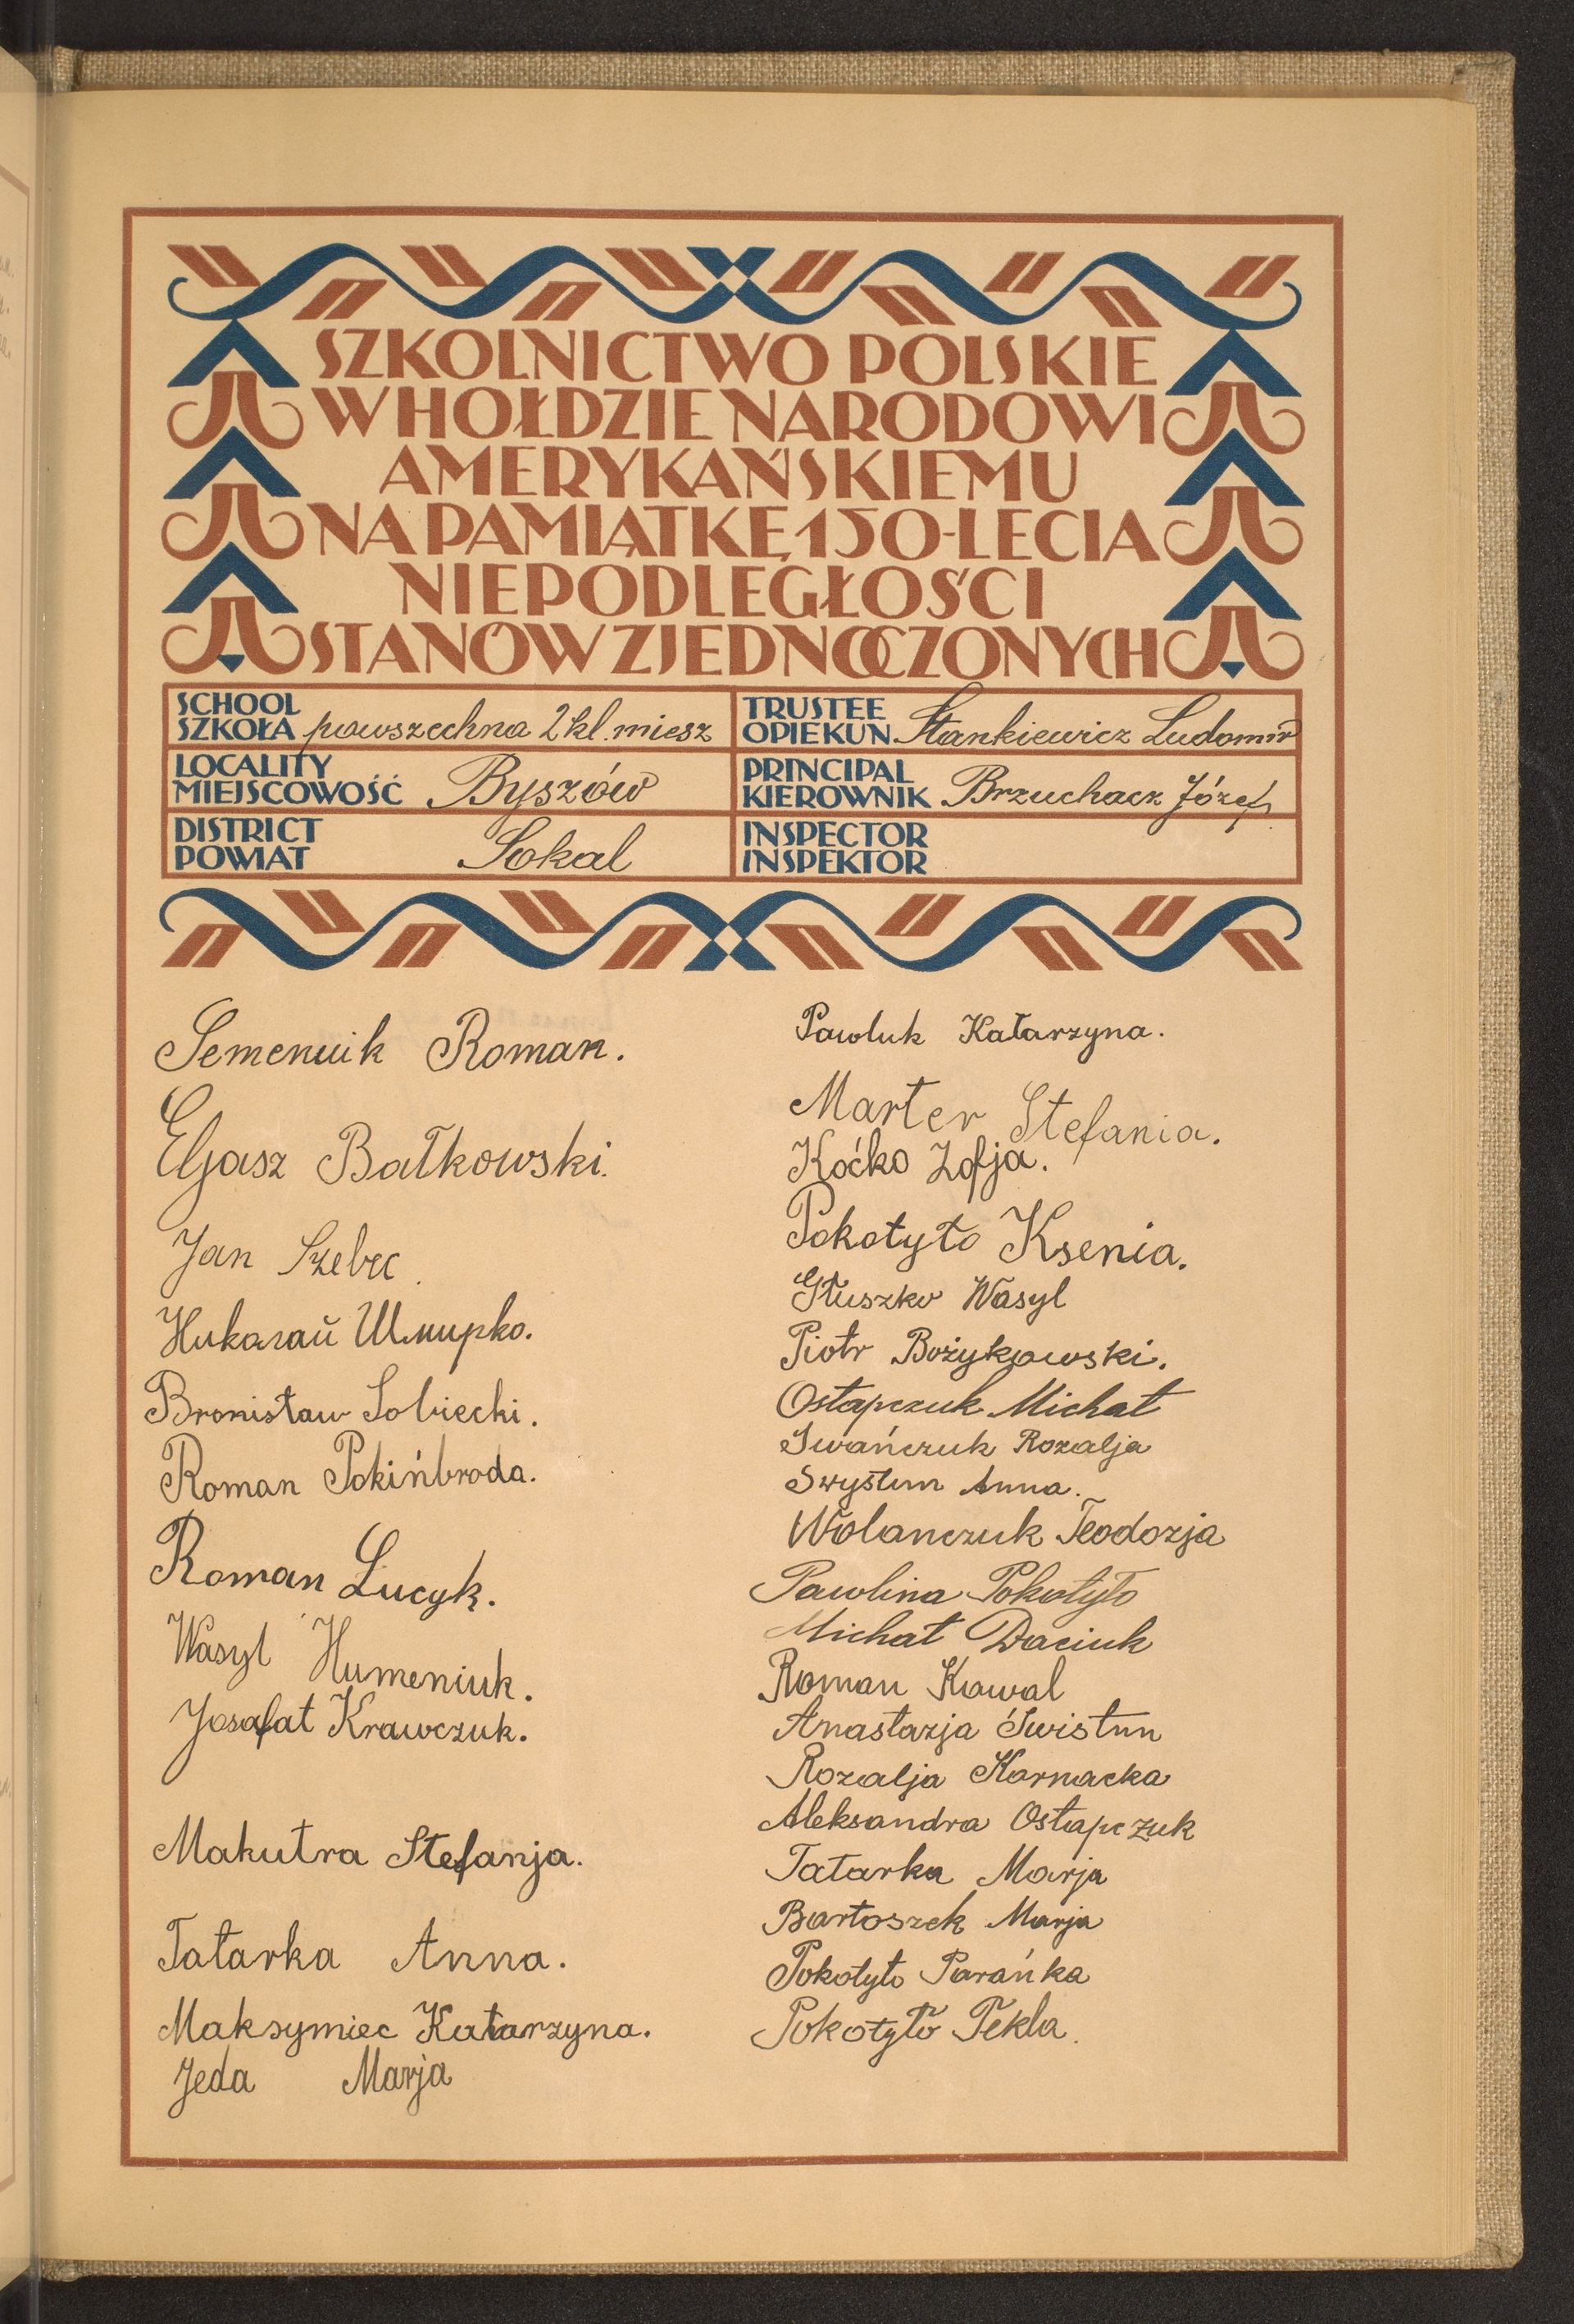 SZKOLNICTWO POLSKIE
W HOŁDZIE NARODOWI
AMERYKAŃSKIEMU
NA PAMIĄTKĘ 150-LECIA
NIEPODLEGŁOŚCI
STANÓW ZJEDNOCZONYCH
SCHOOL
SZKOŁA powszechna 2 kl. miesz
TRUSTEE
OPIEKUN Stankiewicz Ludomir
LOCALITY
MIEJSCOWOŚĆ Byszów
PRINCIPAL
KIEROWNIK Brzuchacz Józef
DISTRICT
POWIAT Sokal
INSPECTOR
INSPEKTOR
Semeniuk Roman.
Eljasz Bałkowski.
Jan Szebec.
Николай Шмирко.
Bronisław Sobiecki.
Roman Pokińbroda.
Roman Łucyk.
Wasyl Humeniuk.
Josafat Krawczuk.
Makutra Stefanja.
Tatarka Anna.
Maksymiec Katarzyna.
Jeda Marja
Pawluk Katarzyna.
Marter Stefania.
Koćko Zofja.
Pokotyło Ksenia.
Głuszko Wasyl
Piotr Bożykowski.
Ostapczuk Michał
Iwańczuk Rozalja
Swystun Anna.
Wolanczuk Teodozja
Pawlina Pokotyło
Michał Daciuk
Roman Kowal
Anastazja Świstun
Rozalja Karnacka
Aleksandra Ostapczuk
Tatarka Marja
Bartoszek Marja
Pokotyło Parańka
Pokotyło Tekla.